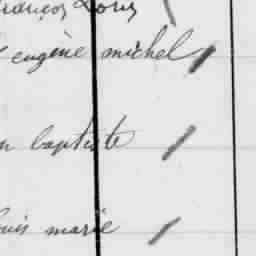 françois Louis
eugène michel
n baptiste
ouis marie